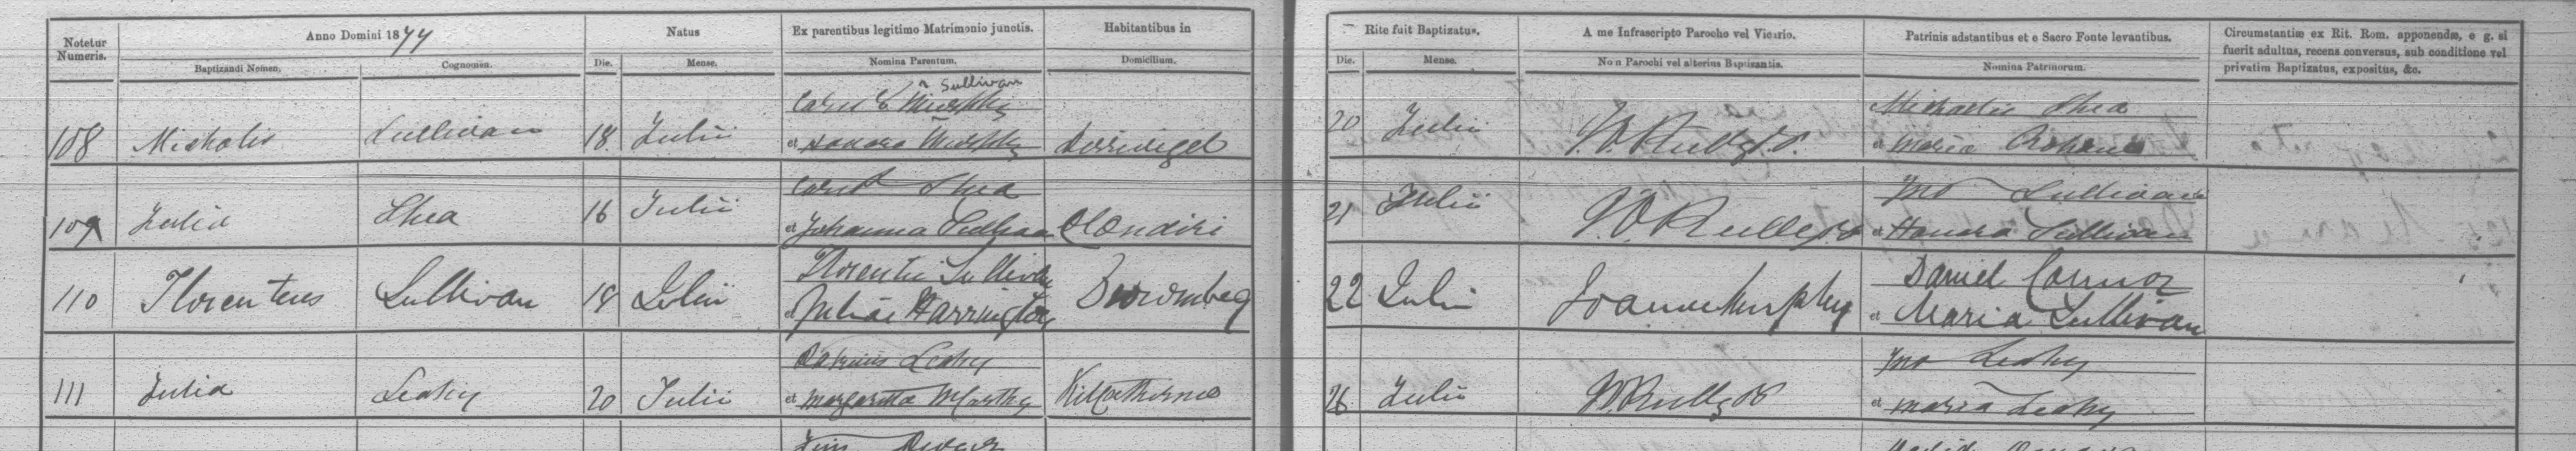 Notetur Numeris.
Anno Domini 1877
Natus
Ex parentibus legitimo Matrimonio junctis.
Habitantibus in
Baptizandi Nomen.
Cognomen.
Die.
Mense.
Nomina Parentum.
Domicilium.
Rite fuit Baptizatus.
A me Infrascripto Parocho vel Vicario.
Patrinis adstantibus et e Sacro Fonte levantibus.
Circumstantiæ ex Rit. Rom. apponendæ, e g. si
fuerit adultus, recens conversus, sub conditione vel
privatim Baptizatus, expositus, &c.
Die.
Mense.
Non Parochi vel alterius Baptizantis.
Nomina Patrinorum.
Sullivan
Murphy
108 Sullivan 18 Julii et Honora Murphy
20 Julii
Michaelis Shea
et Maria
Shea
109 Julia Shea 16 Julii et Johanna Sullivan
21 Julii
Jno Sullivan
et Honora Sullivan
Florentii Sullivan
110 Florenteus Sullivan 18 Julii et Julia Harrington
22 Julii Joanne Murphy
Daniel Connor
et Maria Sullivan
Leahy
111 Julia Leahy 20 Julii et Margaretta McCarthy
26 Julii
Jno Leahy
et Maria Leahy